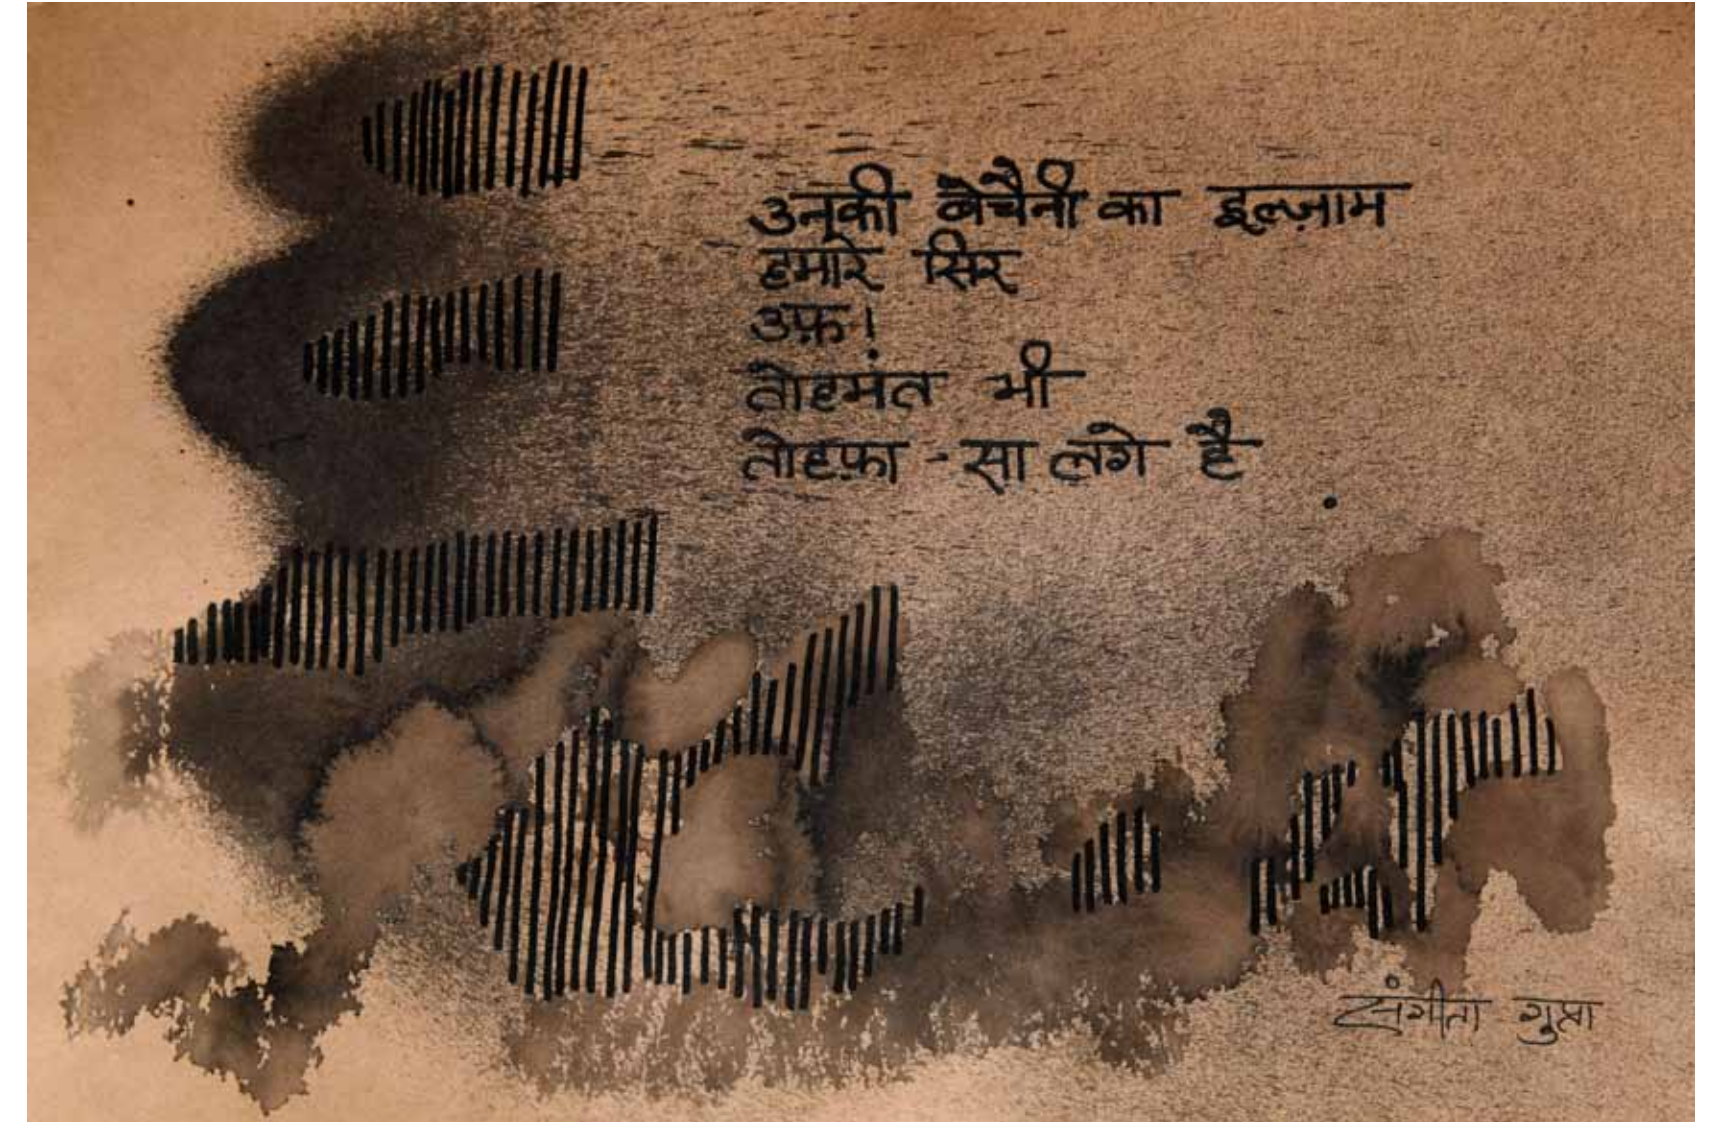 उनकी बेचैनी का इल्ज़ाम
हमारे सिर
उफ़!
तोहमंत भी
तोहफ़ा - सा लगे है
संगीता गुप्ता